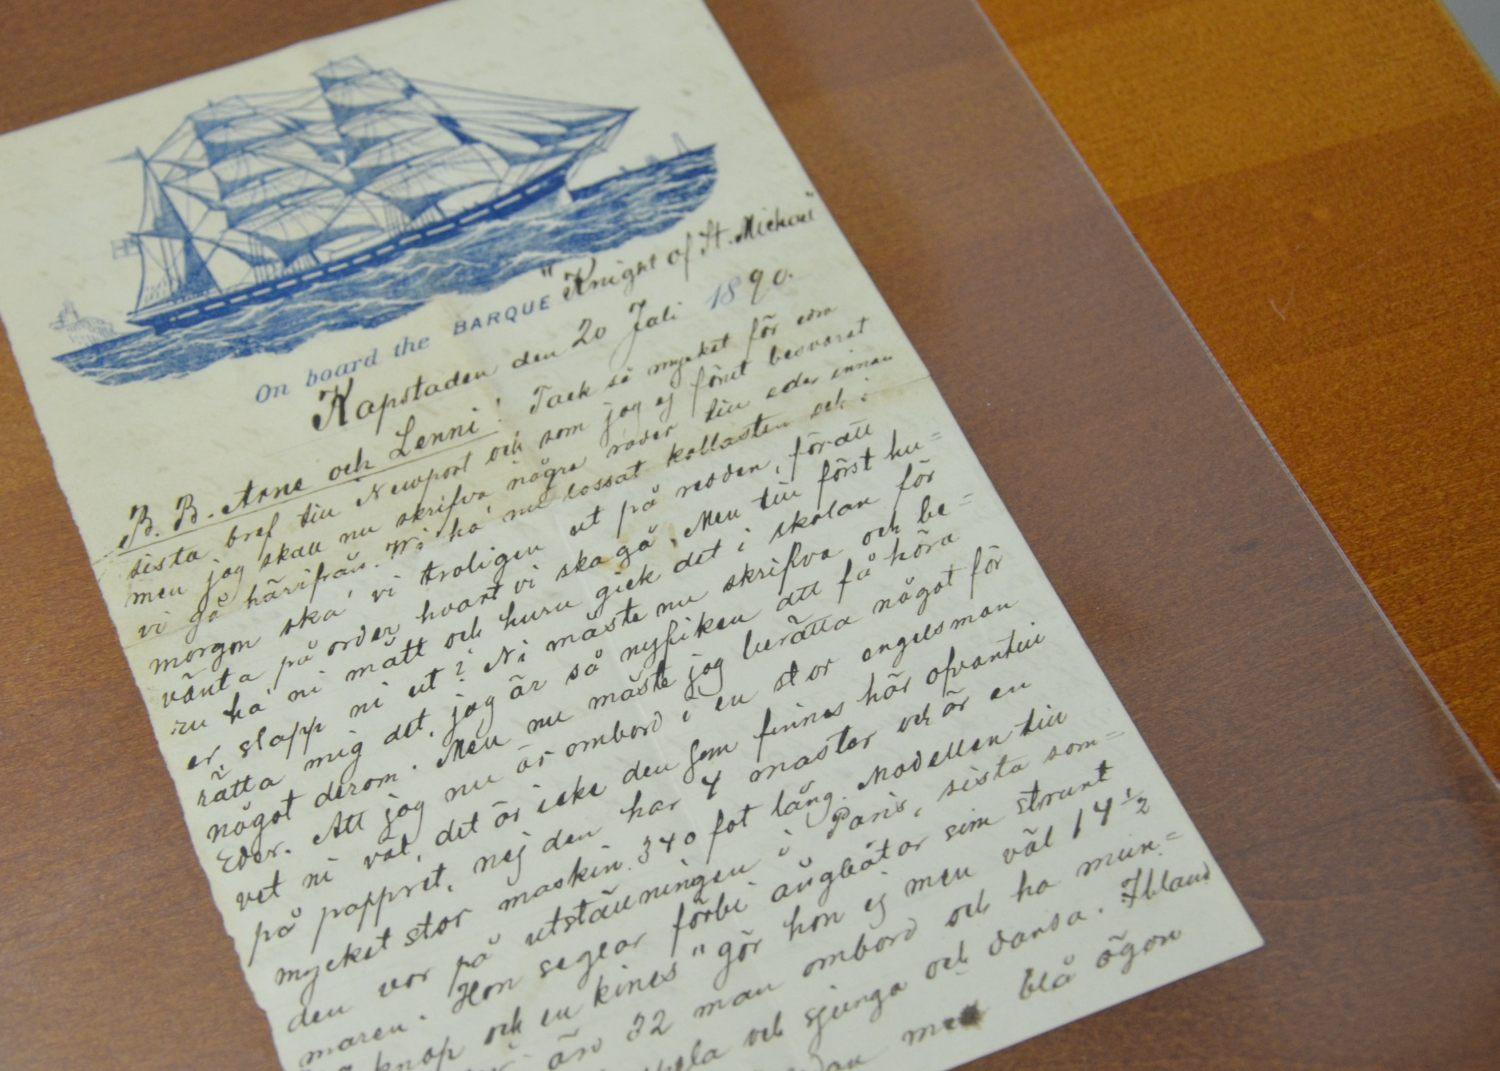 On board the BARQUE "Knight of St. Michael"
Kapstaden den 20 Juli 1890.
B. B. Arne och Lenni! Tack så mycket för edra
sista bref till Newport och som jag ej förut besvarat
men jag skall nu skrifva några rader till eder innan
vi gå härifrån. Vi ha' nu lossat kollasten och i
morgon ska' vi troligen ut på redden, föratt
vänta på order hvart vi ska gå. Men till först hu=
ru ha' ni mått och huru gick det i skolan för
er, slapp ni ut? Ni måste nu skrifva och be=
rätta mig det, jag är så nyfiken att få höra
något derom. Men nu måste jag berätta något för
Eder. Att jag nu är ombord i en stor engelsman
vet ni väl, det är icke den som finnes här ofvantill
på pappret, nej den har 4 master och är en
mycket stor maskin. 340 fot lång. Modellen till
den var på utställningen i Paris, sista som=
maren. Hon seglar förbi ångbåtar sim strunt
knop och en kines" gör hon ej men väl 14 ½
äro 32 man ombord och ha mun=
spela och sjunga och dansa. Ibland
blå ögon